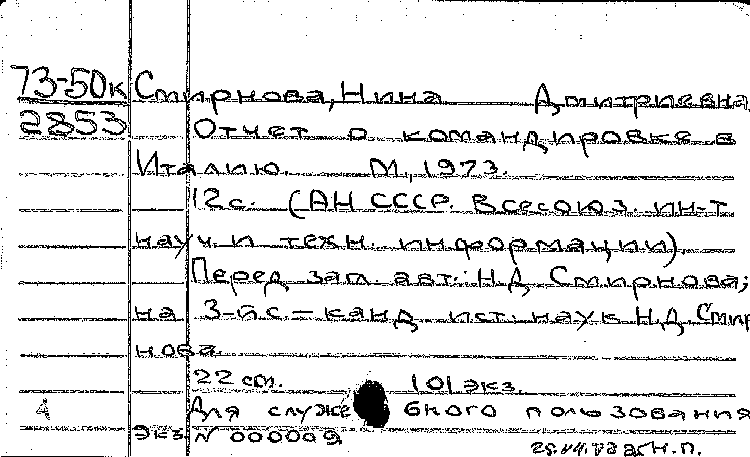 73-50к Смирнова, Нина Дмитриевна
2853 Отчет о командировке в
Италию. М., 1973.
12 с. (АН СССР. Всесоюз. ин-т
науч. и техн. информации).
Перед загл. авт.: Н.Д. Смирнова;
на 3-й с. - канд. ист. наук Н.Д. Смир
нова.
22 см. 101 экз.
Для служебного пользования
Экз. N 000009